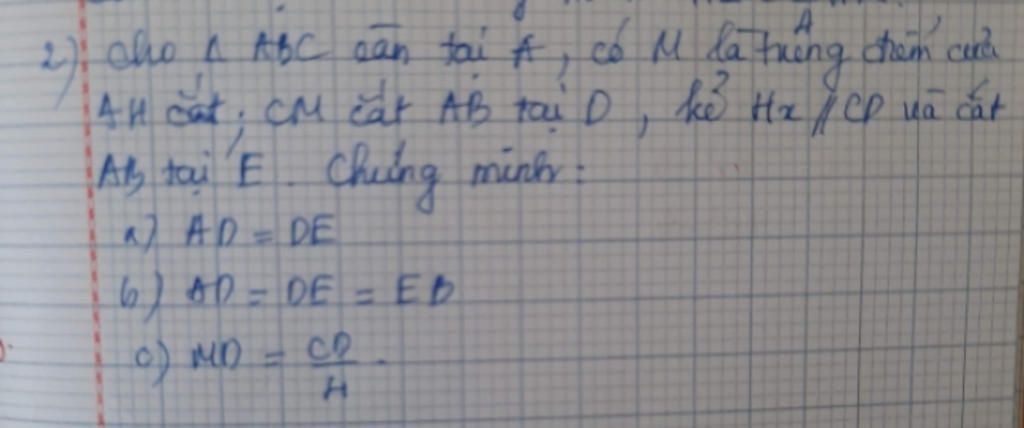 2) Cho Δ ABC cân tại A, có M là trung điểm của
AH cắt; CM cắt AB tại D, kẻ Hx // CD và cắt
AB tại E. Chứng minh:
a) AD = DE
b) AD = DE = EB
c) MD = CD
4